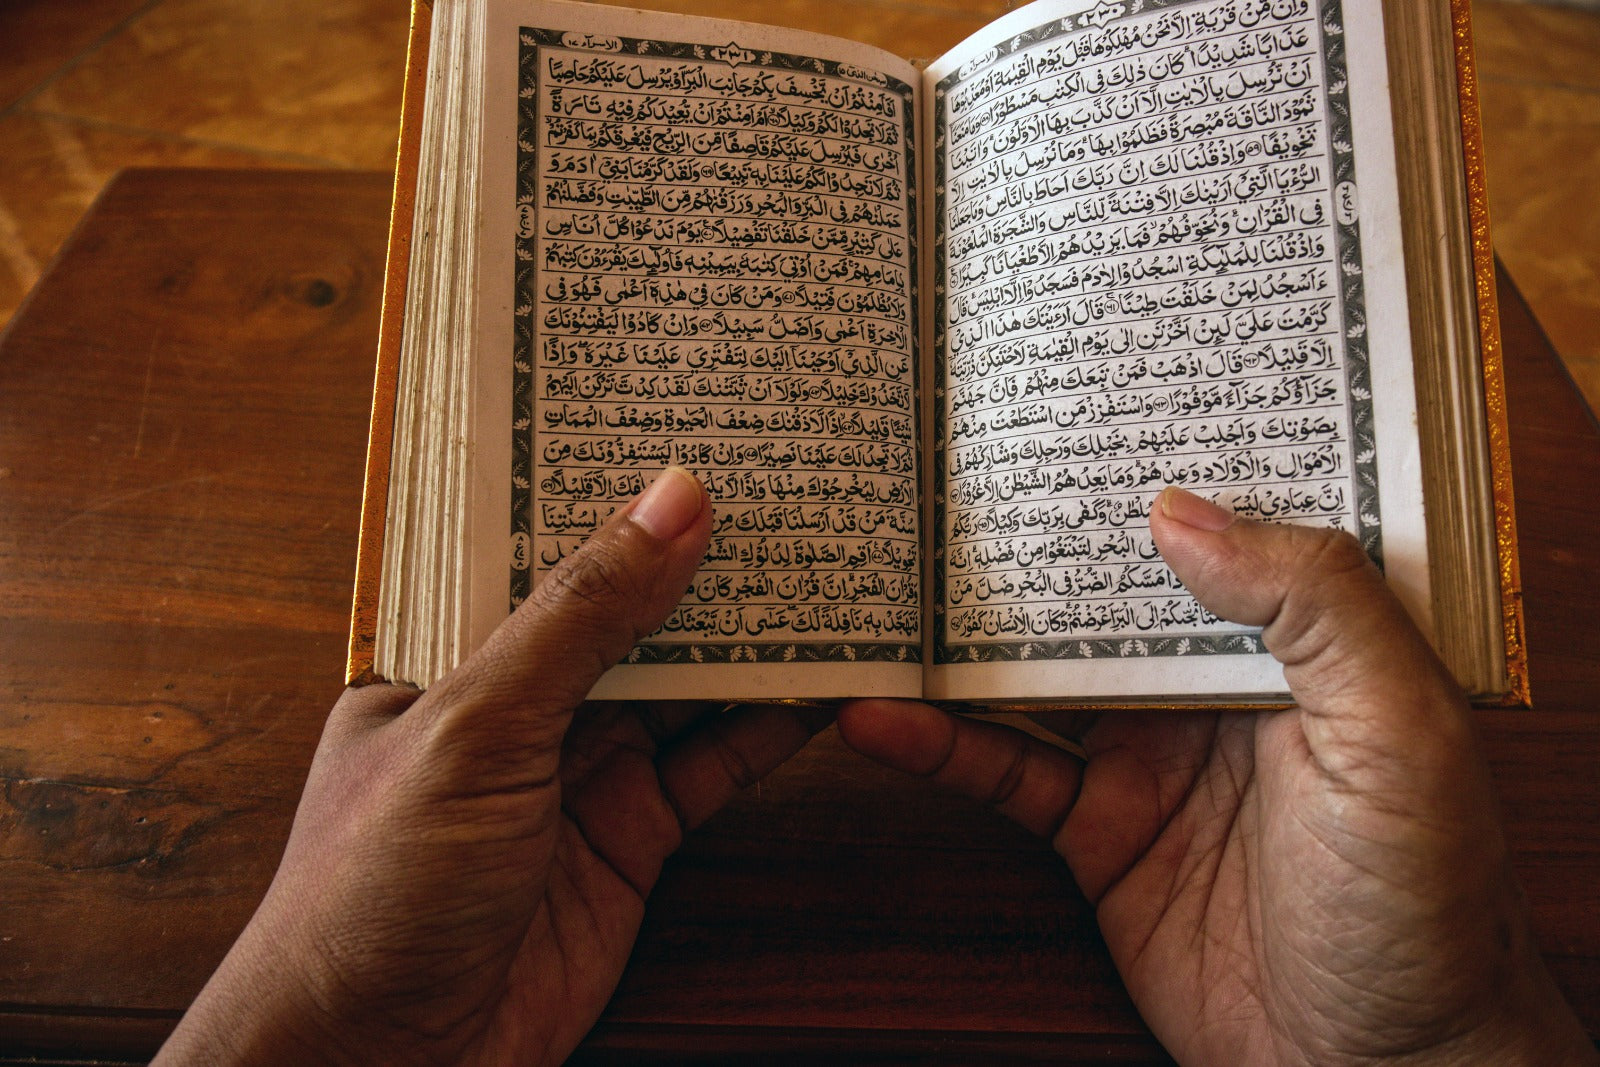 ٢٣٠
الاسرآء ١٧
وَاِنْ مِّنْ قَرْيَةٍ اِلَّا نَحْنُ مُهْلِكُوْهَا قَبْلَ يَوْمِ الْقِيٰمَةِ اَوْ مُعَذِّبُوْهَا
عَذَابًا شَدِيْدًا ۗ كَانَ ذٰلِكَ فِى الْكِتٰبِ مَسْطُوْرًا ٥٨ وَمَا مَنَعَنَا
اَنْ نُّرْسِلَ بِالْاٰيٰتِ اِلَّا اَنْ كَذَّبَ بِهَا الْاَوَّلُوْنَ ۗ وَاٰتَيْنَا
ثَمُوْدَ النَّاقَةَ مُبْصِرَةً فَظَلَمُوْا بِهَا ۗ وَمَا نُرْسِلُ بِالْاٰيٰتِ اِلَّا
تَخْوِيْفًا ٥٩ وَاِذْ قُلْنَا لَكَ اِنَّ رَبَّكَ اَحَاطَ بِالنَّاسِ ۗ وَمَا جَعَلْنَا
الرُّءْيَا الَّتِيْ اَرَيْنٰكَ اِلَّا فِتْنَةً لِّلنَّاسِ وَالشَّجَرَةَ الْمَلْعُوْنَةَ
فِى الْقُرْاٰنِ ۗ وَنُخَوِّفُهُمْ ۙ فَمَا يَزِيْدُهُمْ اِلَّا طُغْيَانًا كَبِيْرًا ٦٠
وَاِذْ قُلْنَا لِلْمَلٰٓئِكَةِ اسْجُدُوْا لِاٰدَمَ فَسَجَدُوْا اِلَّا اِبْلِيْسَ ۗ قَالَ
ءَاَسْجُدُ لِمَنْ خَلَقْتَ طِيْنًا ٦١ قَالَ اَرَءَيْتَكَ هٰذَا الَّذِيْ
كَرَّمْتَ عَلَيَّ لَئِنْ اَخَّرْتَنِ اِلٰى يَوْمِ الْقِيٰمَةِ لَاَحْتَنِكَنَّ ذُرِّيَّتَهٗ
اِلَّا قَلِيْلًا ٦٢ قَالَ اذْهَبْ فَمَنْ تَبِعَكَ مِنْهُمْ فَاِنَّ جَهَنَّمَ
جَزَآؤُكُمْ جَزَآءً مَّوْفُوْرًا ٦٣ وَاسْتَفْزِزْ مَنِ اسْتَطَعْتَ مِنْهُمْ
بِصَوْتِكَ وَاَجْلِبْ عَلَيْهِمْ بِخَيْلِكَ وَرَجِلِكَ وَشَارِكْهُمْ فِى
الْاَمْوَالِ وَالْاَوْلَادِ وَعِدْهُمْ ۗ وَمَا يَعِدُهُمُ الشَّيْطٰنُ اِلَّا غُرُوْرًا ٦٤
اِنَّ عِبَادِيْ لَيْسَ سُلْطٰنٌ ۗ وَكَفٰى بِرَبِّكَ وَكِيْلًا ٦٥ رَبُّكُمُ
الْبَحْرِ لِتَبْتَغُوْا مِنْ فَضْلِهٖ ۗ اِنَّهٗ
مَسَّكُمُ الضُّرُّ فِى الْبَحْرِ ضَلَّ مَنْ
نَجّٰىكُمْ اِلَى الْبَرِّ اَعْرَضْتُمْ ۗ وَكَانَ الْاِنْسَانُ كَفُوْرًا ٦٧
٢٣١
الاسرآء ١٧
اَفَاَمِنْتُمْ اَنْ يَّخْسِفَ بِكُمْ جَانِبَ الْبَرِّ اَوْ يُرْسِلَ عَلَيْكُمْ حَاصِبًا
ثُمَّ لَا تَجِدُوْا لَكُمْ وَكِيْلًا ٦٨ اَمْ اَمِنْتُمْ اَنْ يُّعِيْدَكُمْ فِيْهِ تَارَةً
اُخْرٰى فَيُرْسِلَ عَلَيْكُمْ قَاصِفًا مِّنَ الرِّيْحِ فَيُغْرِقَكُمْ بِمَا كَفَرْتُمْ
ثُمَّ لَا تَجِدُوْا لَكُمْ عَلَيْنَا بِهٖ تَبِيْعًا ٦٩ وَلَقَدْ كَرَّمْنَا بَنِيْ اٰدَمَ وَ
حَمَلْنٰهُمْ فِى الْبَرِّ وَالْبَحْرِ وَرَزَقْنٰهُمْ مِّنَ الطَّيِّبٰتِ وَفَضَّلْنٰهُمْ
عَلٰى كَثِيْرٍ مِّمَّنْ خَلَقْنَا تَفْضِيْلًا ٧٠ يَوْمَ نَدْعُوْا كُلَّ اُنَاسٍ
بِاِمَامِهِمْ ۚ فَمَنْ اُوْتِيَ كِتٰبَهٗ بِيَمِيْنِهٖ فَاُولٰٓئِكَ يَقْرَءُوْنَ كِتٰبَهُمْ
وَلَا يُظْلَمُوْنَ فَتِيْلًا ٧١ وَمَنْ كَانَ فِيْ هٰذِهٖ اَعْمٰى فَهُوَ فِى
الْاٰخِرَةِ اَعْمٰى وَاَضَلُّ سَبِيْلًا ٧٢ وَاِنْ كَادُوْا لَيَفْتِنُوْنَكَ
عَنِ الَّذِيْ اَوْحَيْنَا اِلَيْكَ لِتَفْتَرِيَ عَلَيْنَا غَيْرَهٗ ۖ وَاِذًا
لَّاتَّخَذُوْكَ خَلِيْلًا ٧٣ وَلَوْلَا اَنْ ثَبَّتْنٰكَ لَقَدْ كِدْتَّ تَرْكَنُ اِلَيْهِمْ
شَيْئًا قَلِيْلًا ٧٤ اِذًا لَّاَذَقْنٰكَ ضِعْفَ الْحَيٰوةِ وَضِعْفَ الْمَمَاتِ
ثُمَّ لَا تَجِدُ لَكَ عَلَيْنَا نَصِيْرًا ٧٥ وَاِنْ كَادُوْا لَيَسْتَفِزُّوْنَكَ مِنَ
الْاَرْضِ لِيُخْرِجُوْكَ مِنْهَا وَاِذًا لَّا اِلَّا قَلِيْلًا ٧٦
سُنَّةَ مَنْ قَدْ اَرْسَلْنَا قَبْلَكَ مِنْ لِسُنَّتِنَا
تَحْوِيْلًا ٧٧ اَقِمِ الصَّلٰوةَ لِدُلُوْكِ
وَقُرْاٰنَ الْفَجْرِ ۗ اِنَّ قُرْاٰنَ الْفَجْرِ كَانَ
فَتَهَجَّدْ بِهٖ نَافِلَةً لَّكَ ۖ عَسٰى اَنْ يَّبْعَثَكَ